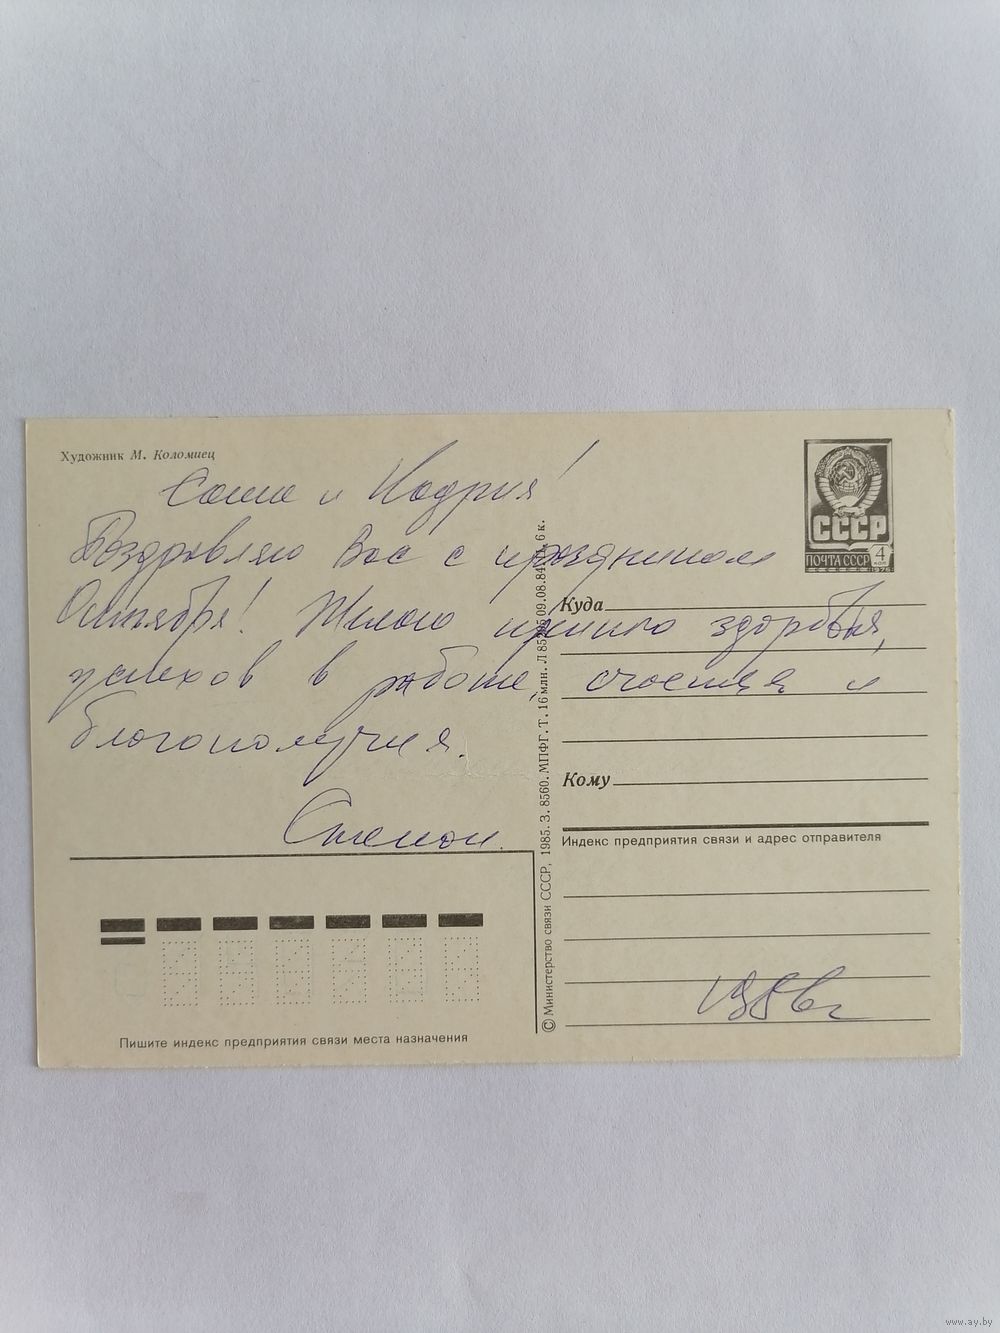 Художник М. Коломиец
Саша и Надрия!
Поздравляю Вас с праздником
Октября! Желаю крепкого здоровья,
успехов в работе, счастья и
благополучия.
Степан.
1986г
ПОЧТА СССР
СССР
4 коп
1976
Куда
Кому
Индекс предприятия связи и адрес отправителя
Пишите индекс предприятия связи места назначения
© Министерство связи СССР, 1985. З. 8560. МПФГ. Т. 16 млн. Л 09.08.84 Ц. 6 к.
www.ay.by